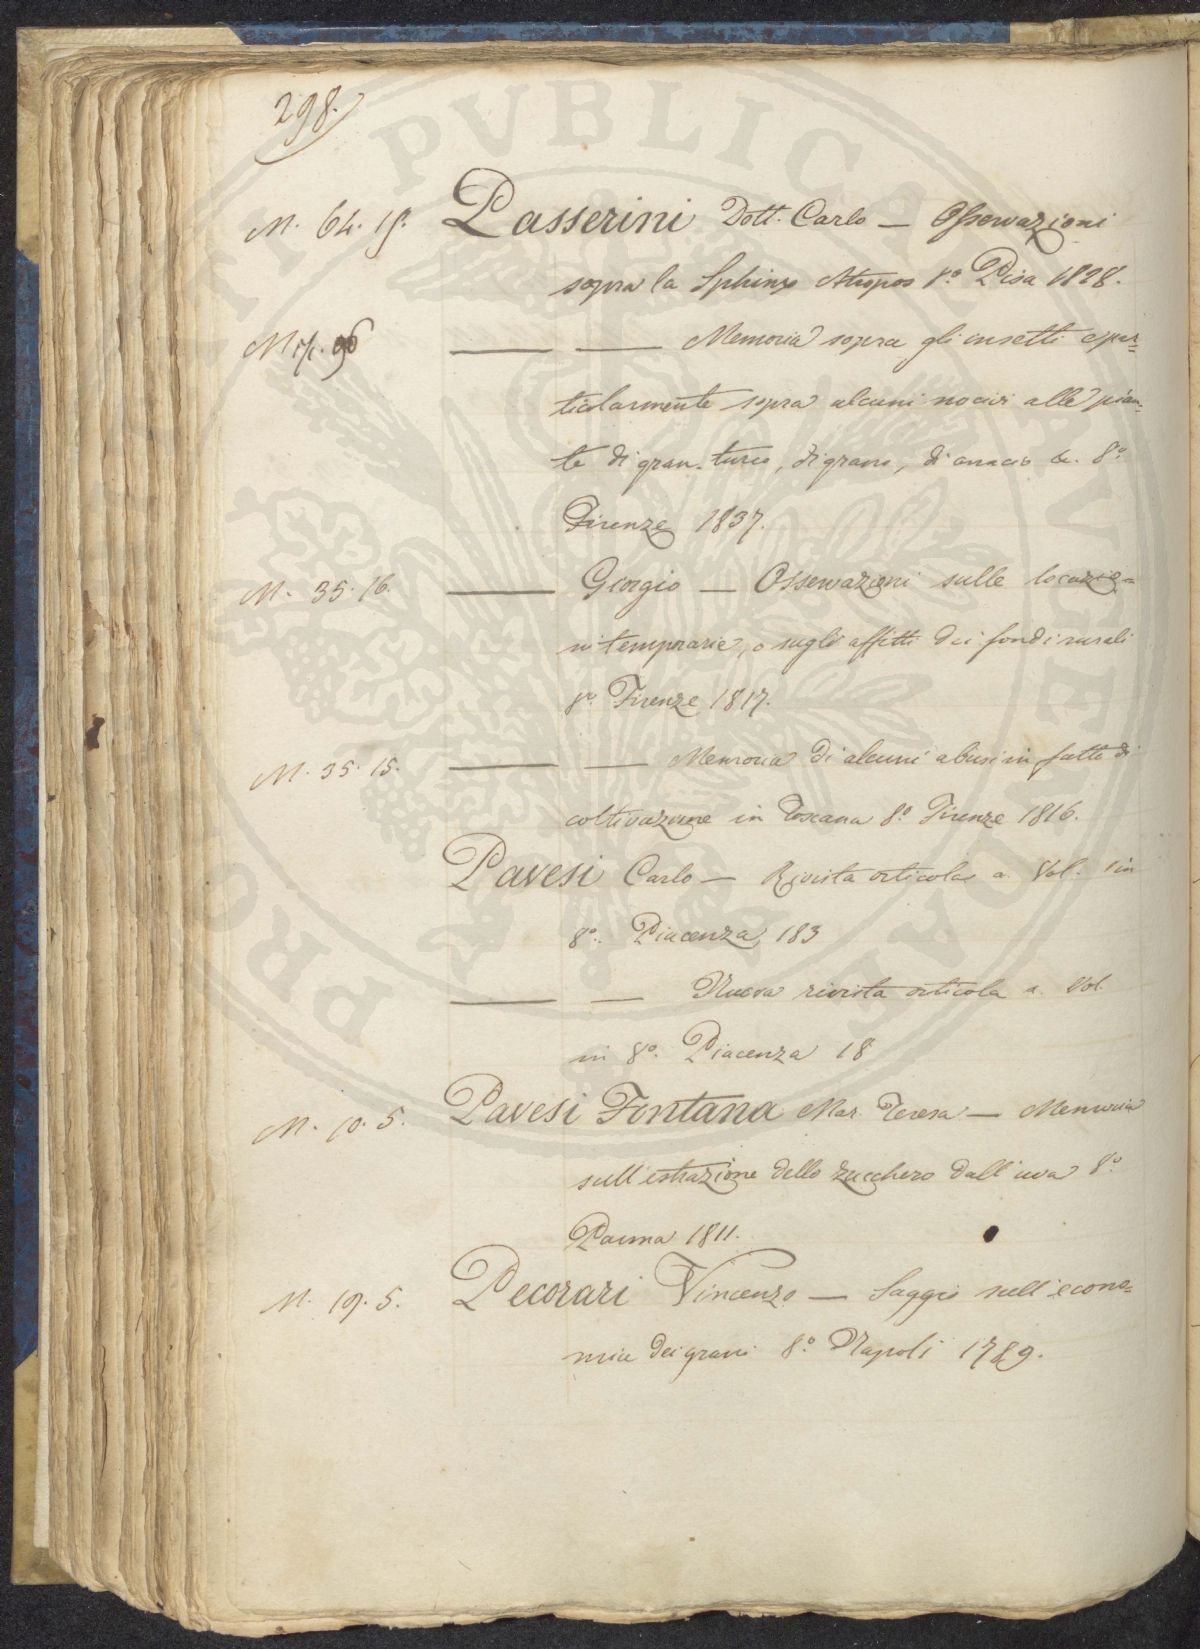 298.
M. 64. 19. Passerini Dott. Carlo — Osservazioni
sopra la Sphinx Atropos 8.º Pisa 1828.
M. 96 — — Memoria sopra gli insetti e par=
ticolarmente sopra alcuni nocivi alle pian=
te di gran-turco, di grano, di &c. 8.º
Firenze 1837.
M. 35. 16. — Giorgio — Osservazioni sulle locazio=
ni temporarie, o sugli affitti dei fondi rurali
8.º Firenze 1817.
M. 35. 15. — — Memoria di alcuni abusi in fatto di
coltivazione in Toscana 8.º Firenze 1816.
Pavesi Carlo — Rivista orticola a. Vol. in
8.º Piacenza 183
— — Nuova rivista orticola a. Vol.
in 8.º Piacenza 18
M. 10. 5. Pavesi Fontana Mar. Teresa — Memoria
sull'estrazione dello zucchero dall'uva 8.º
Parma 1811.
M. 19. 5. Pecorari Vincenzo — Saggio sull'econo=
mia dei grani 8.º Napoli 1789.